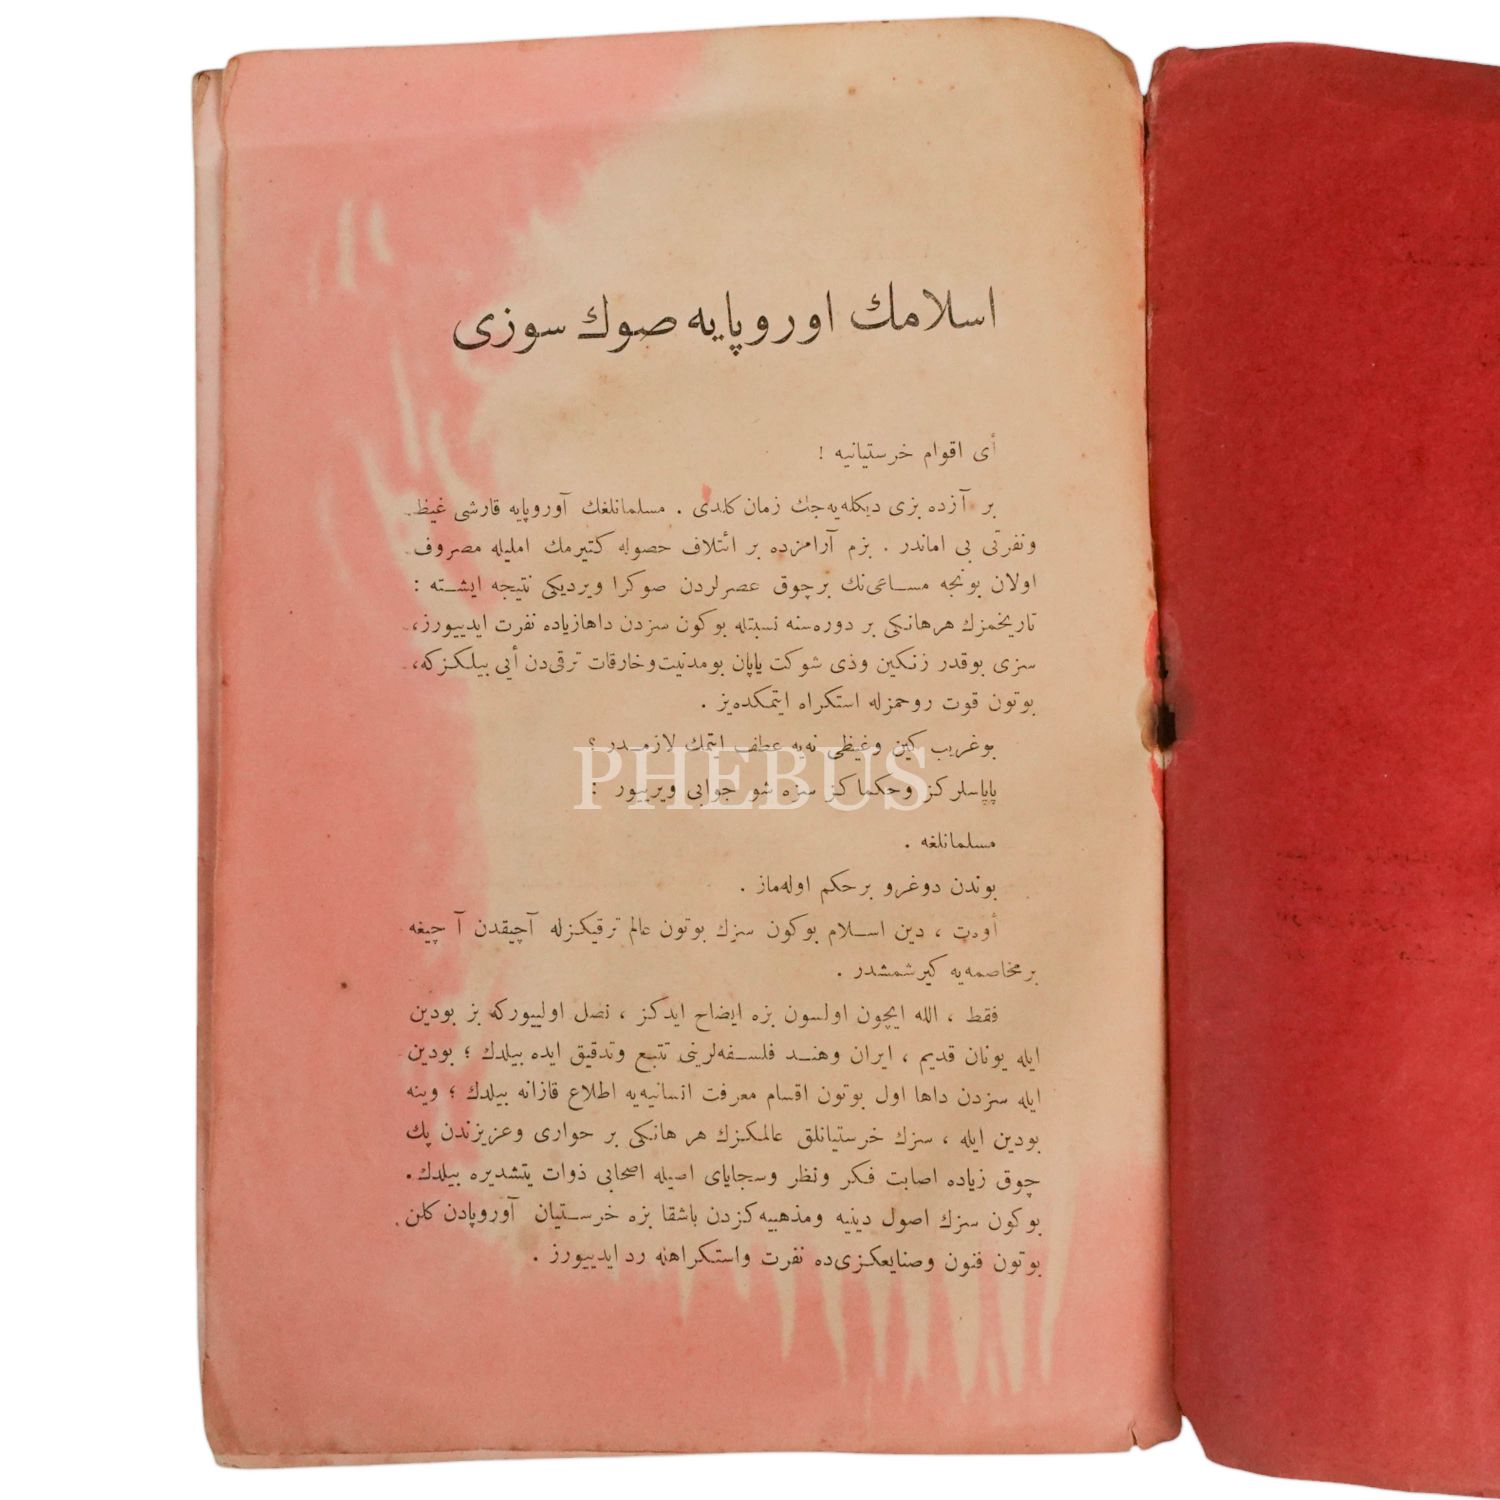 اسلامك اوروپایه صوك سوزی
أی اقوام خرستیانیه !
بر آزده بزی دیكله‌یه‌جك زمان كلدی . مسلمانلغك آوروپایه قارشی غیظ
ونفرتی بی اماندر . بزم آرامزده بر ائتلاف حصوله كتیرمك املیله مصروف
اولان بونجه مساعی‌نك برچوق عصرلردن صوكرا ویردیكی نتیجه ایشته :
تاریخمزك هرهانكی بر دوره‌سنه نسبتله بوكون سزدن داهازیاده نفرت ایدییورز ،
سزی بوقدر زنكین وذی شوكت یاپان بومدنیت وخارقات ترقی‌دن أیی بیلكزكه ،
بوتون قوت روحمزله استكراه ایتمكده‌یز .
بوغریب كین وغیظی نه‌یه عطف ایتمك لازمدر ؟
پاپاسلركز وحكماكز سزه شو جوابی ویرییور :
PHEBUS
مسلمانلغه .
بوندن دوغرو برحكم اوله‌ماز .
أوه‌ت ، دین اسلام بوكون سزك بوتون عالم ترقیكزله آچیقدن آ چیغه
بر مخاصمه‌یه كیرشمشدر .
فقط ، الله ایچون اولسون بزه ایضاح ایدكز ، نصل اولییوركه بز بودین
ایله یونان قدیم ، ایران وهند فلسفه‌لرینی تتبع وتدقیق ایده بیلدك ؛ بودین
ایله سزدن داها اول بوتون اقسام معرفت انسانیه‌یه اطلاع قازانه بیلدك ؛ وینه
بودین ایله ، سزك خرستیانلق عالمكزك هر هانكی بر حواری وعزیزندن پك
چوق زیاده اصابت فكر ونظر وسجایای اصیله اصحابی ذوات یتشدیره بیلدك .
بوكون سزك اصول دینیه ومذهبیه‌كزدن باشقا بزه خرستیان آوروپادن كلن
بوتون فنون وصنایعكزی‌ده نفرت واستكراهنه رد ایدییورز .